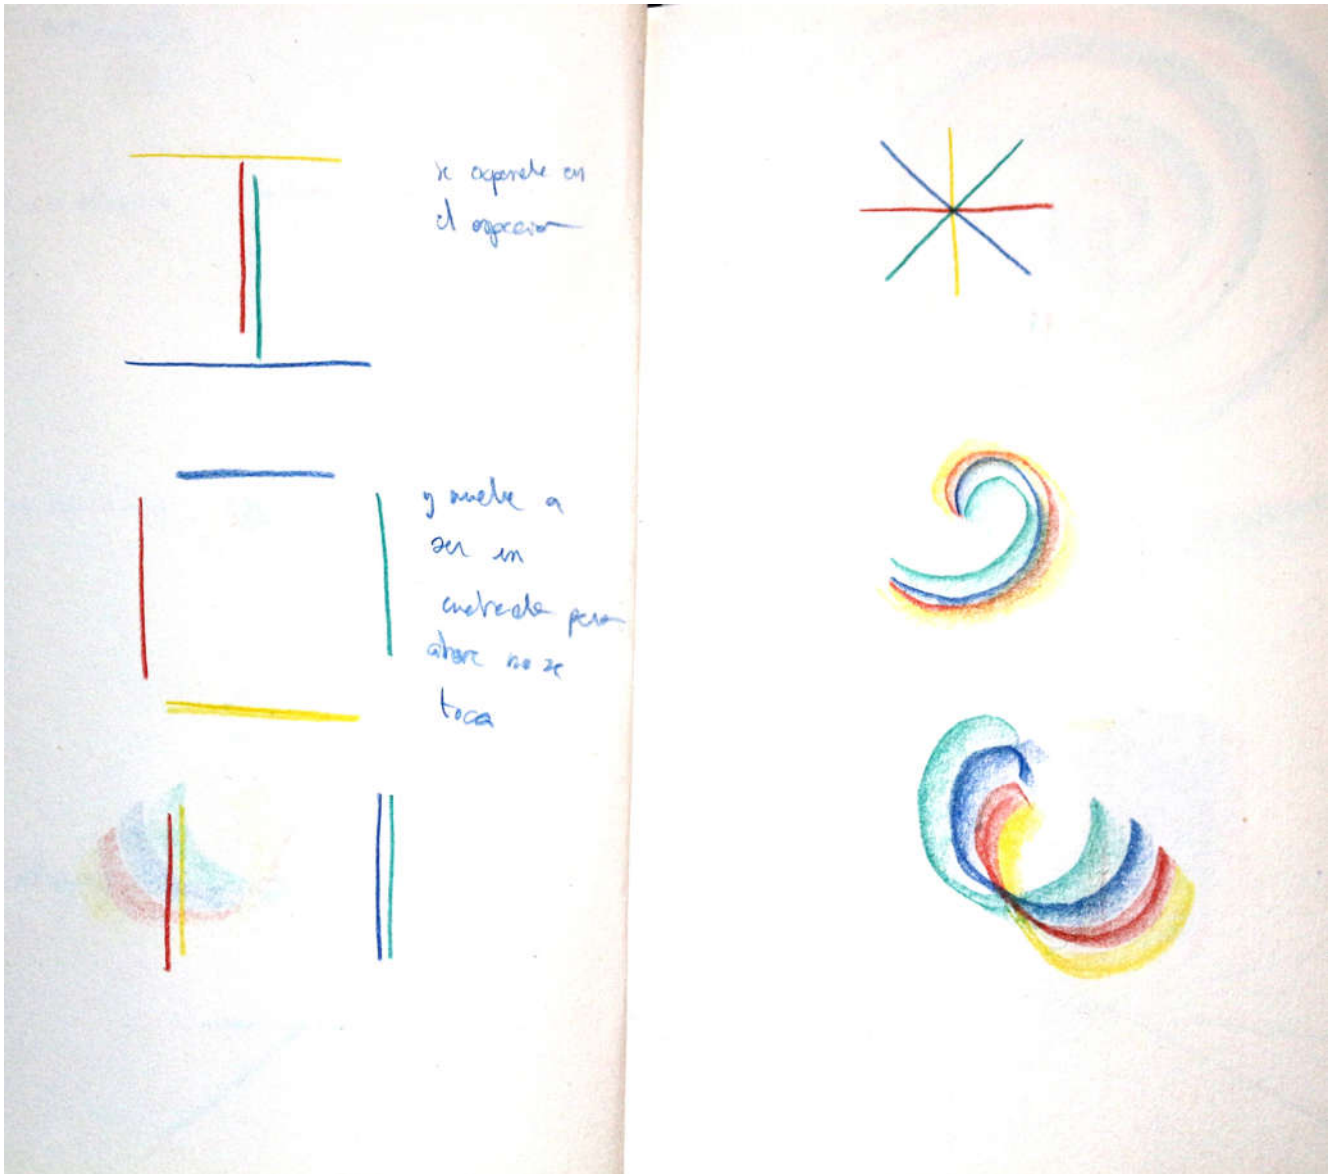 se expande en
el espacio
y vuelve a
ser un
cuadrado pero
ahora no se
toca